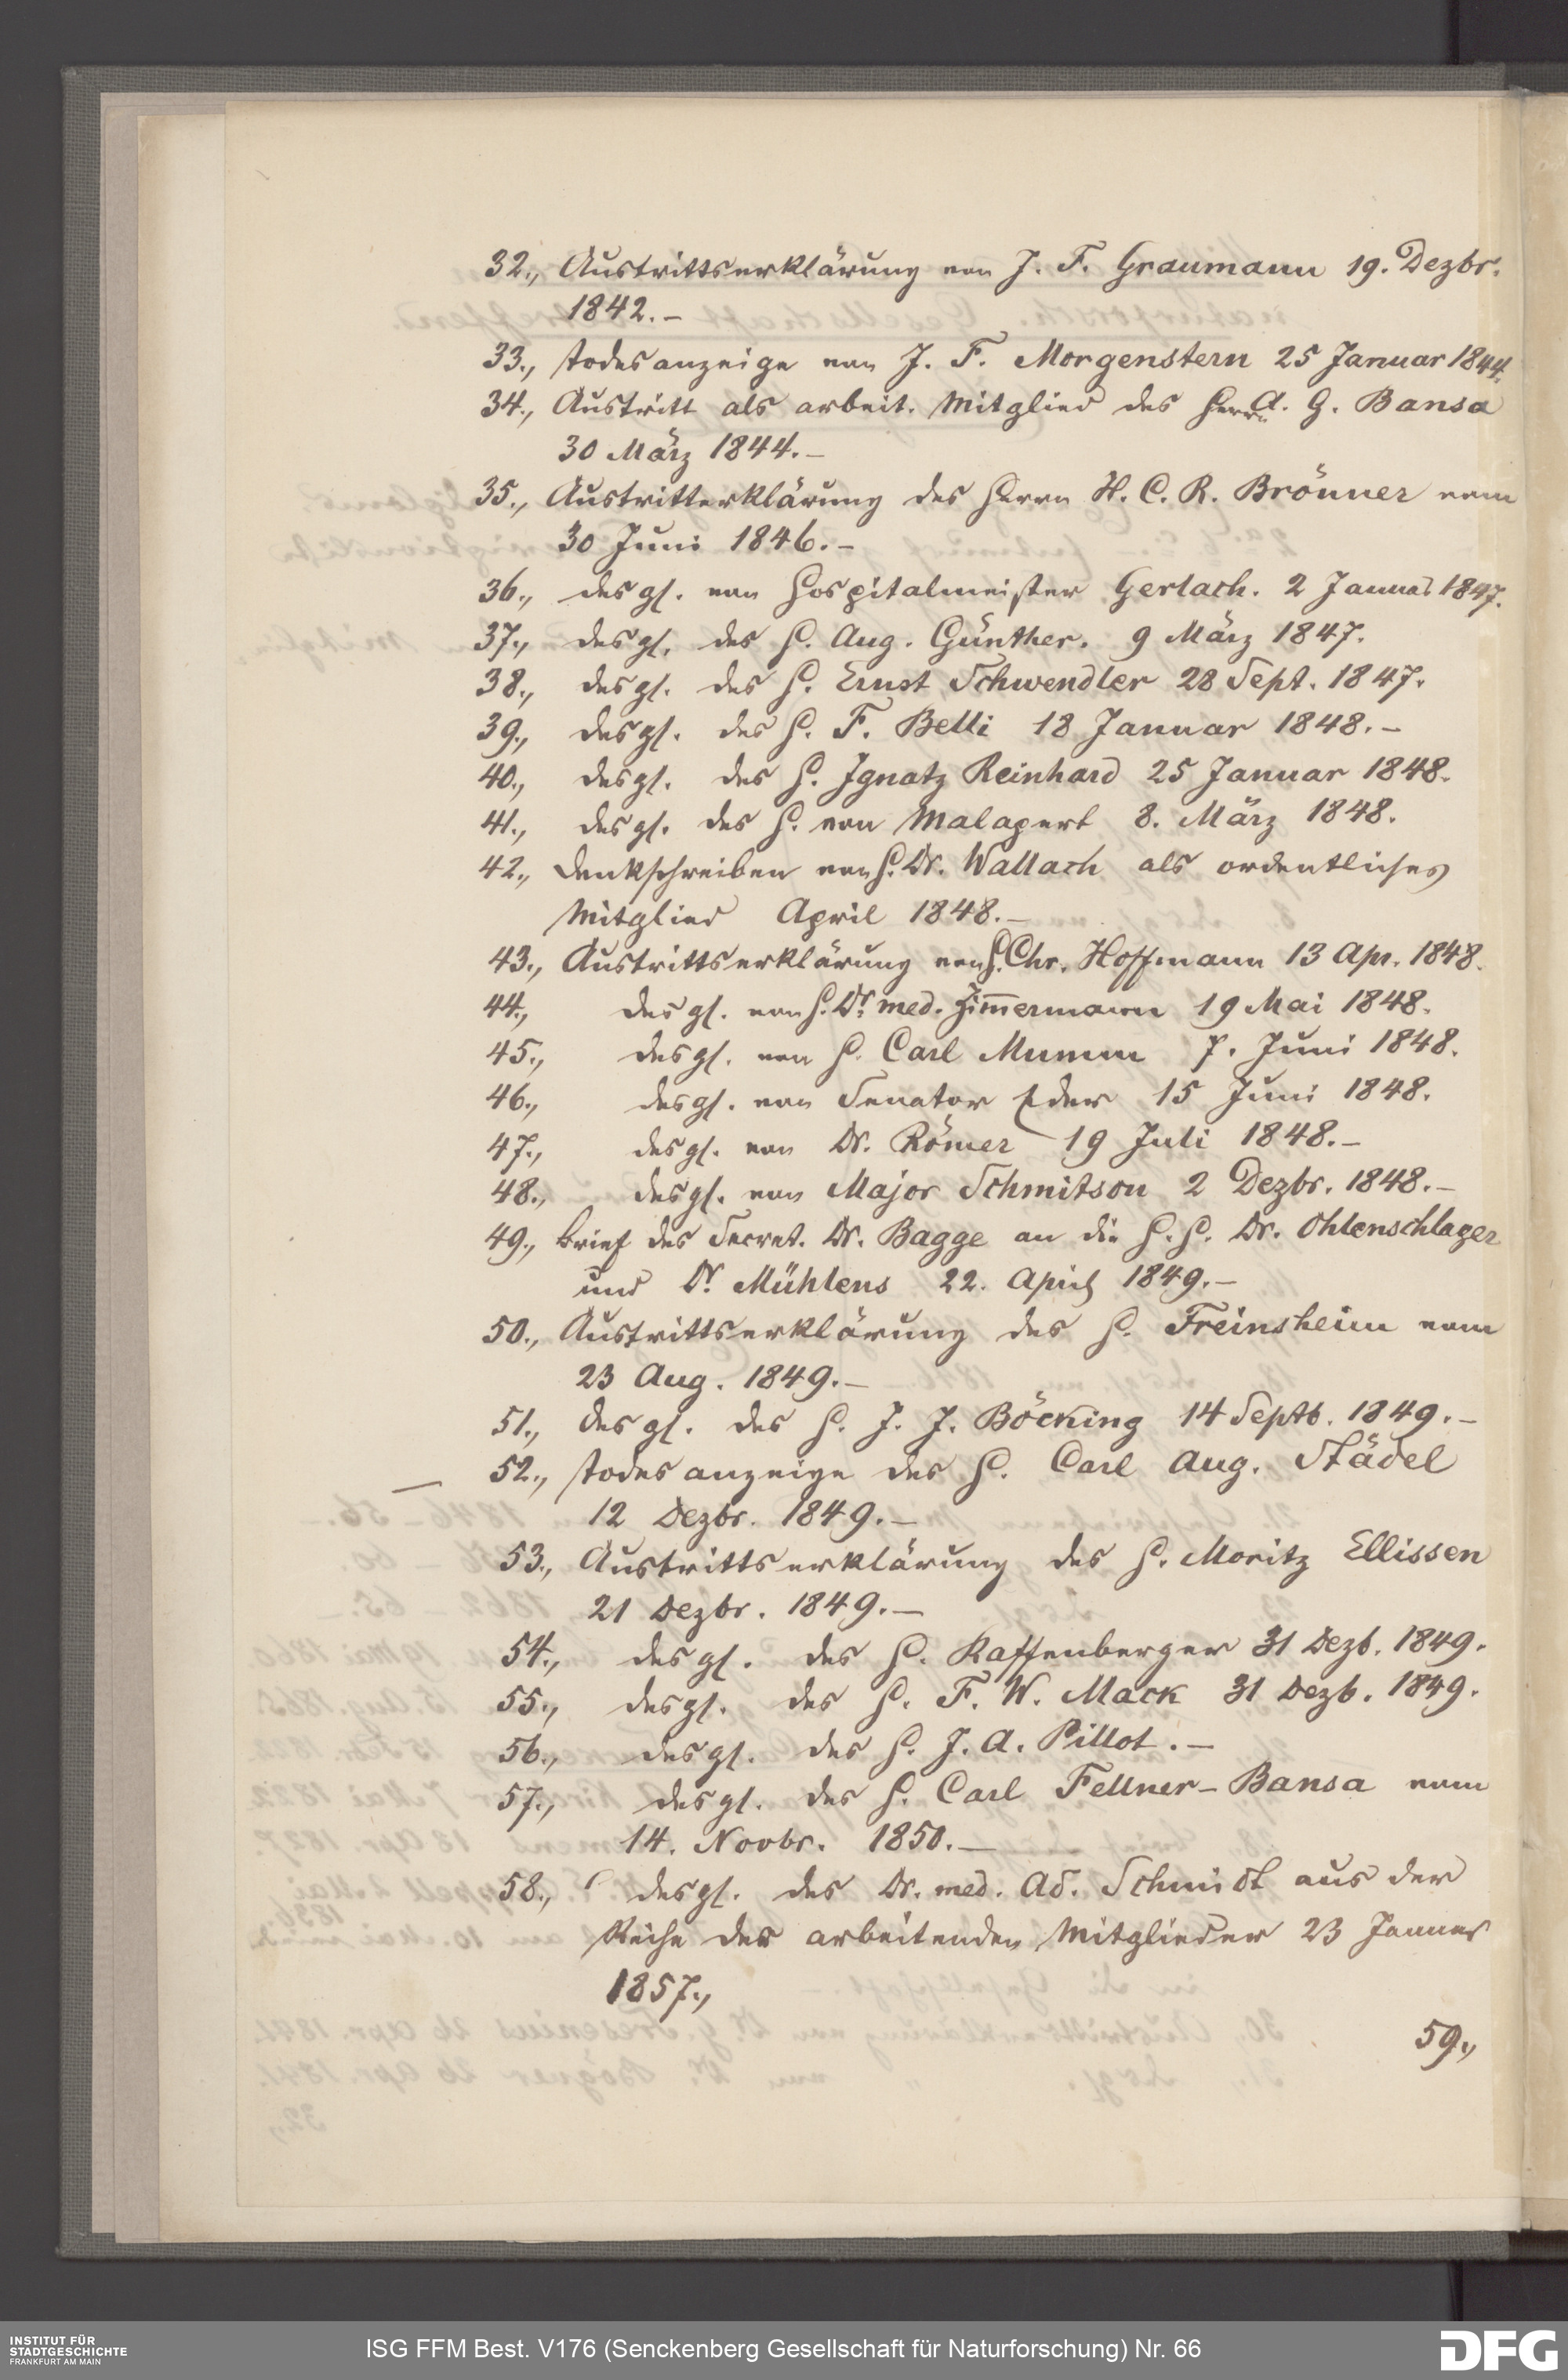 32., Austrittserklärung von J. F. Graumann 19. Dezbr.
1842.–
33., Todesanzeige von J. F. Morgenstern 25 Januar 1844.
34., Austritt als arbeit. Mitglied des Herrn A. G. Bansa
30 März 1844.–
35., Austritterklärung des Herrn H. C. R. Brönner vom
30 Juni 1846.–
36., desgl. von Hospitalmeister Gerlach. 2 Januar 1847.
37., desgl. des H. Aug. Günther. 9 März 1847.
38., desgl. des H. Ernst Schwendler 28 Sept. 1847.
39., desgl. des H. F. Belli 18 Januar 1848.–
40., desgl. des H. Ignatz Reinhard 25 Januar 1848.
41., desgl. des H. von Malapert 8. März 1848.
42., Dankschreiben von H. Dr. Wallach als ordentliches
Mitglied April 1848.–
43., Austrittserklärung von H. Chr. Hoffmann 13 Apr. 1848.
44., desgl. von H. Dr. med. Zim̄ermann 19 Mai 1848.
45., desgl. von H. Carl Mumm 7. Juni 1848.
46., desgl. von Senator Eder 15 Juni 1848.
47., desgl. von Dr. Römer 19 Juli 1848.–
48., desgl. von Major Schmitson 2 Dezbr. 1848.–
49., Brief des Secret. Dr. Bagge an die H. H. Dr. Ohlenschlager
und Dr. Mühlens 22. April 1849.–
50., Austrittserklärung des H. Freinsheim vom
23 Aug. 1849.–
51., desgl. des H. J. J. Böcking 14 Septb. 1849.–
52., Todesanzeige des H. Carl Aug. Städel
12 Dezbr. 1849.–
53., Austrittserklärung des H. Moritz Ellissen
21 Dezbr. 1849.–
54., desgl. des H. Kaffenberger 31 Dezb. 1849.
55., desgl. des H. F. W. Mack 31 Dezb. 1849.
56., desgl. des H. J. A. Pillot.–
57., desgl. des H. Carl Fellner-Bansa vom
14. Novbr. 1850.–
58., desgl. des Dr. med. Ad. Schmidt aus der
Reihe der arbeitenden Mitglieder 23 Januar
1857.,
59.,
INSTITUT FÜR
STADTGESCHICHTE
FRANKFURT AM MAIN
ISG FFM Best. V176 (Senckenberg Gesellschaft für Naturforschung) Nr. 66
DFG